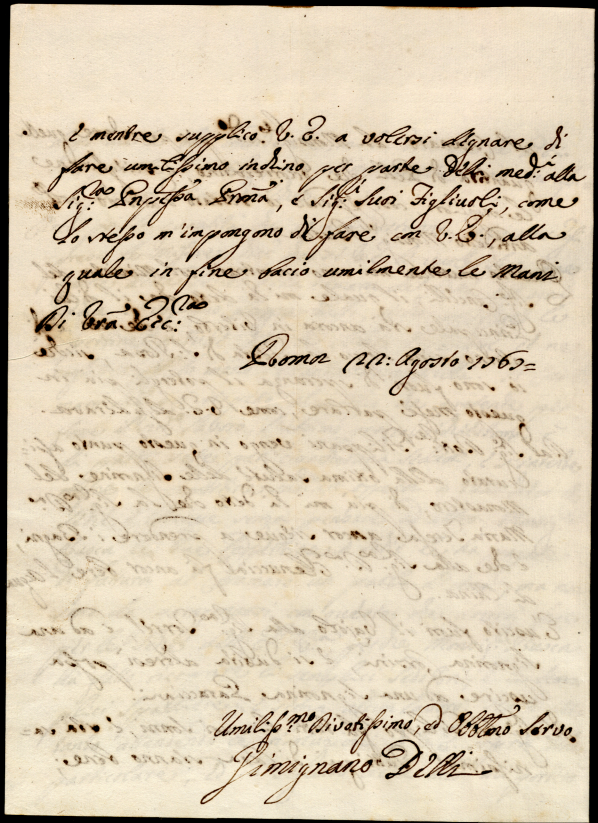 e mentre supplico V. E. a volersi dignare di
fare umilissimo inchino per parte delli med:i alla
Sig:ra Pnpessa Prma, e Sig:i Suoi Figliuoli, come
lo stesso m'impongono di fare con V. E., alla
quale in fine bacio umilmente le Mani
Di Vra Ecc:za
Roma 22: Agosto 1767=
Umiliss:mo Divotissimo, ed Obblmo Servo
Gimignano